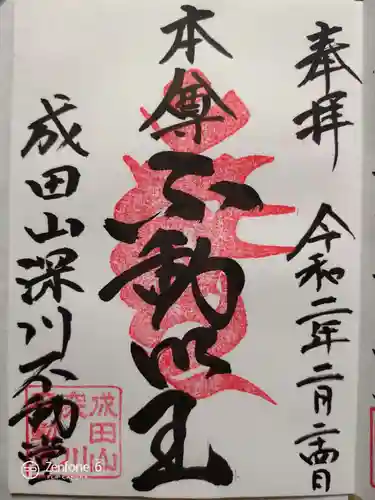 奉拝
令和二年二月二十四日
本尊
不動明王
成田山深川不動堂
成田山
深川
Zenfone 6